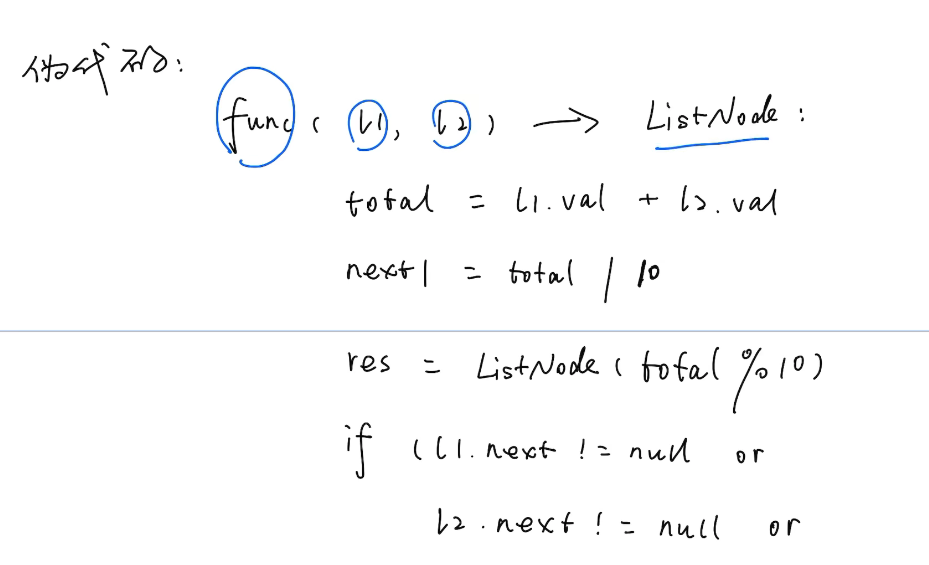 伪代码:
func(l1, l2) → ListNode:
total = l1.val + l2.val
next1 = total / 10
res = ListNode(total % 10)
if (l1.next != null or
l2.next != null or